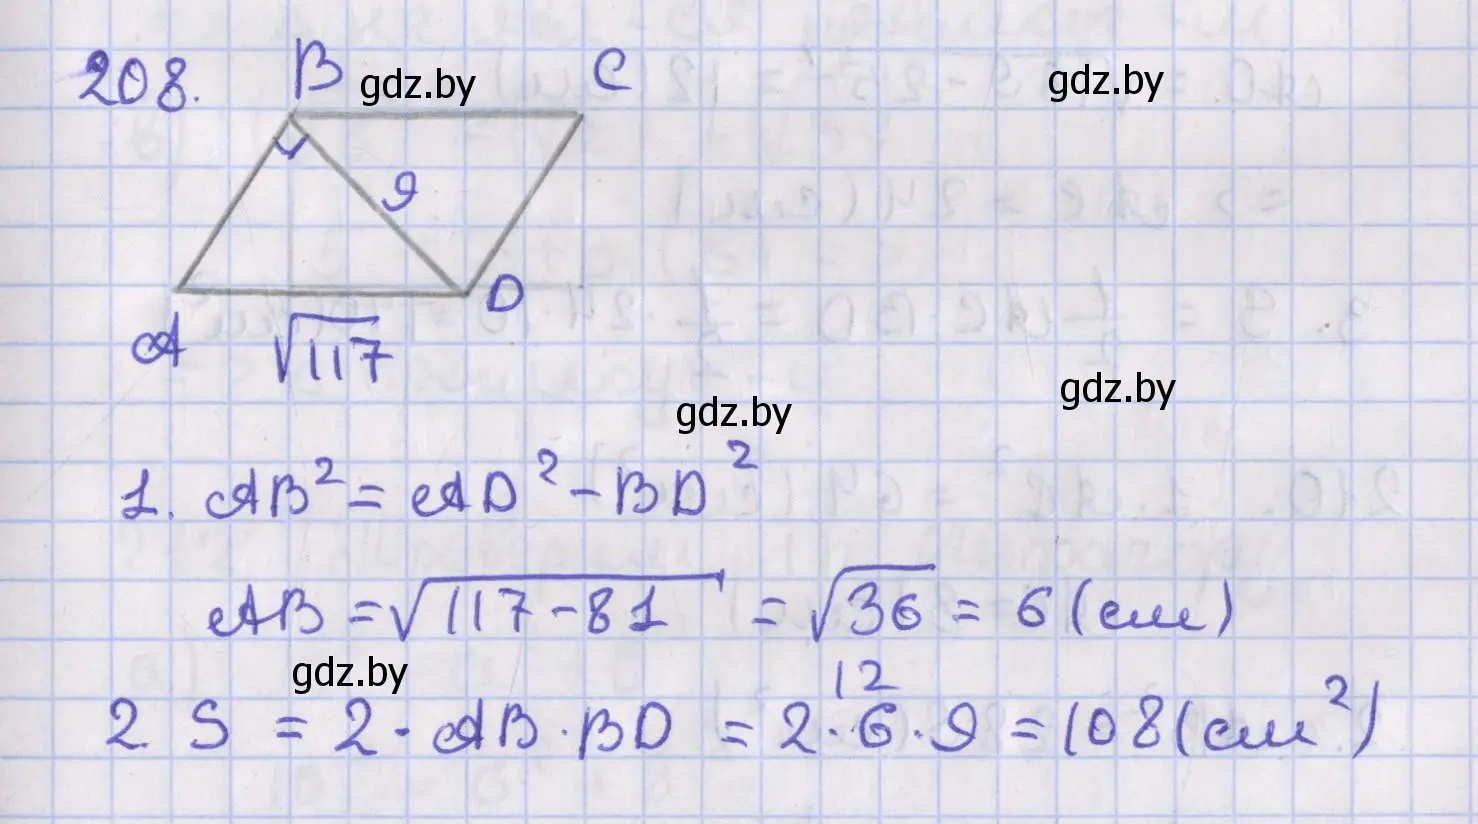 208. B gdz.by C gdz.by
9
D
A √117
gdz.by
gdz.by
1. AB² = AD² - BD²
AB = √117-81 = √36 = 6 (см)
gdz.by
12
2. S = 2 · AB · BD = 2 · 6 · 9 = 108 (см²)